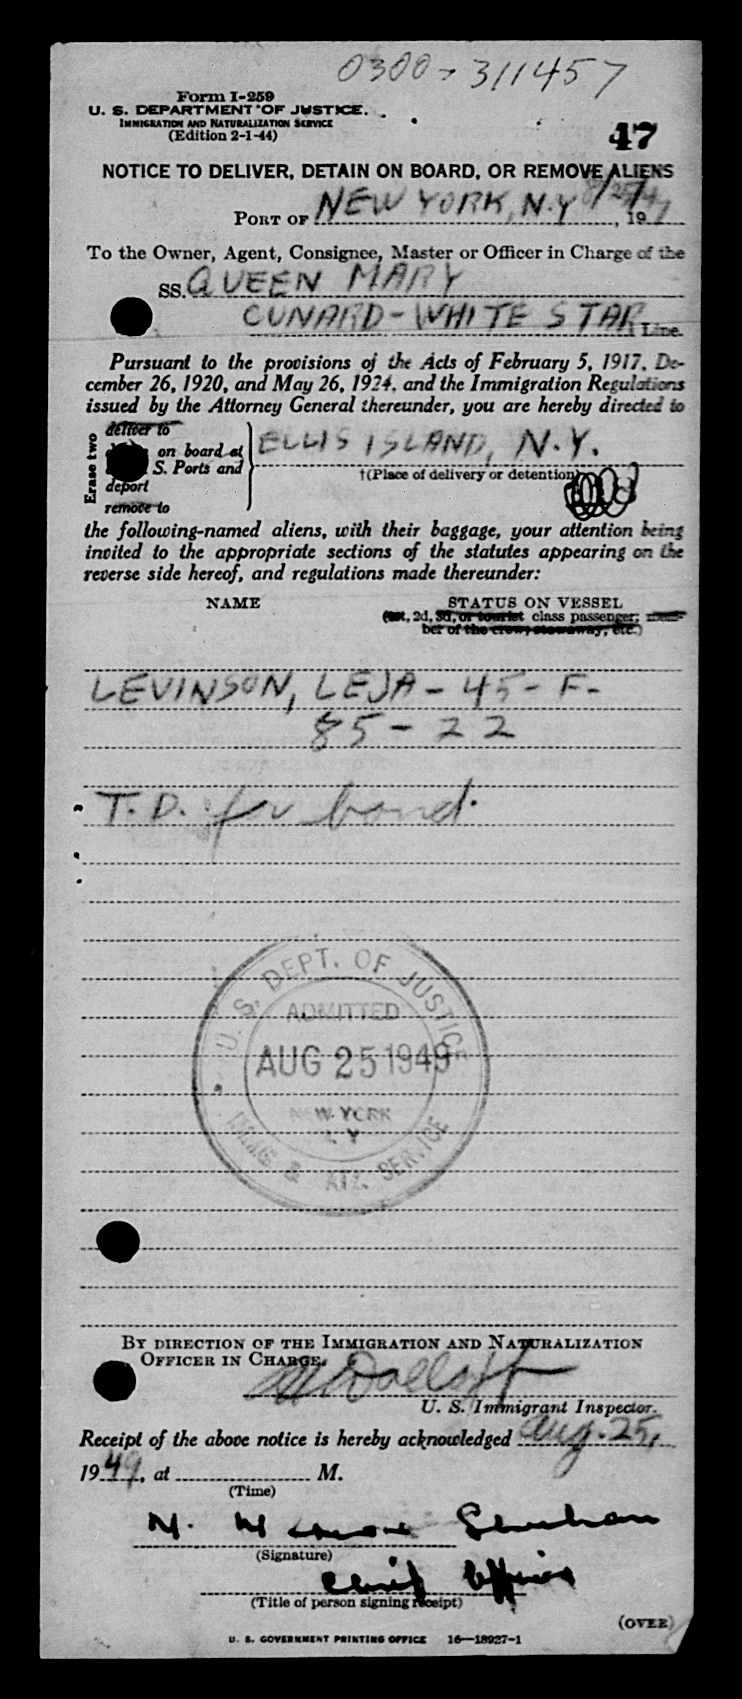 0300-311457
Form I-259
U. S. DEPARTMENT OF JUSTICE.
IMMIGRATION AND NATURALIZATION SERVICE
(Edition 2-1-44)
47
NOTICE TO DELIVER, DETAIN ON BOARD, OR REMOVE ALIENS
PORT OF NEW YORK, N.Y 8/25/ , 19
To the Owner, Agent, Consignee, Master or Officer in Charge of the
SS. QUEEN MARY
CUNARD-WHITE STAR Line.
Pursuant to the provisions of the Acts of February 5, 1917, De-
cember 26, 1920, and May 26, 1924, and the Immigration Regulations
issued by the Attorney General thereunder, you are hereby directed to
Erase two
deliver to
on board at
S. Ports and
deport
remove to
ELLIS ISLAND, N.Y.
†(Place of delivery or detention)
the following-named aliens, with their baggage, your attention being
invited to the appropriate sections of the statutes appearing on the
reverse side hereof, and regulations made thereunder:
NAME STATUS ON VESSEL
(1st, 2d, 3d, or tourist class passenger; mem-
ber of the crew, stowaway, etc.)
LEVINSON, LEJA - 45 - F -
85 - 22
T. D. for bond.
U. S. DEPT. OF JUSTICE
ADMITTED
AUG 25 1949
NEW YORK
N. Y.
IMMIG & NAT. SERVICE
BY DIRECTION OF THE IMMIGRATION AND NATURALIZATION
OFFICER IN CHARGE.
U. S. Immigrant Inspector.
Receipt of the above notice is hereby acknowledged Aug. 25,
1949, at M.
(Time)
(Signature)
Chief Officer
(Title of person signing receipt)
(OVER)
U. S. GOVERNMENT PRINTING OFFICE 16—18927-1